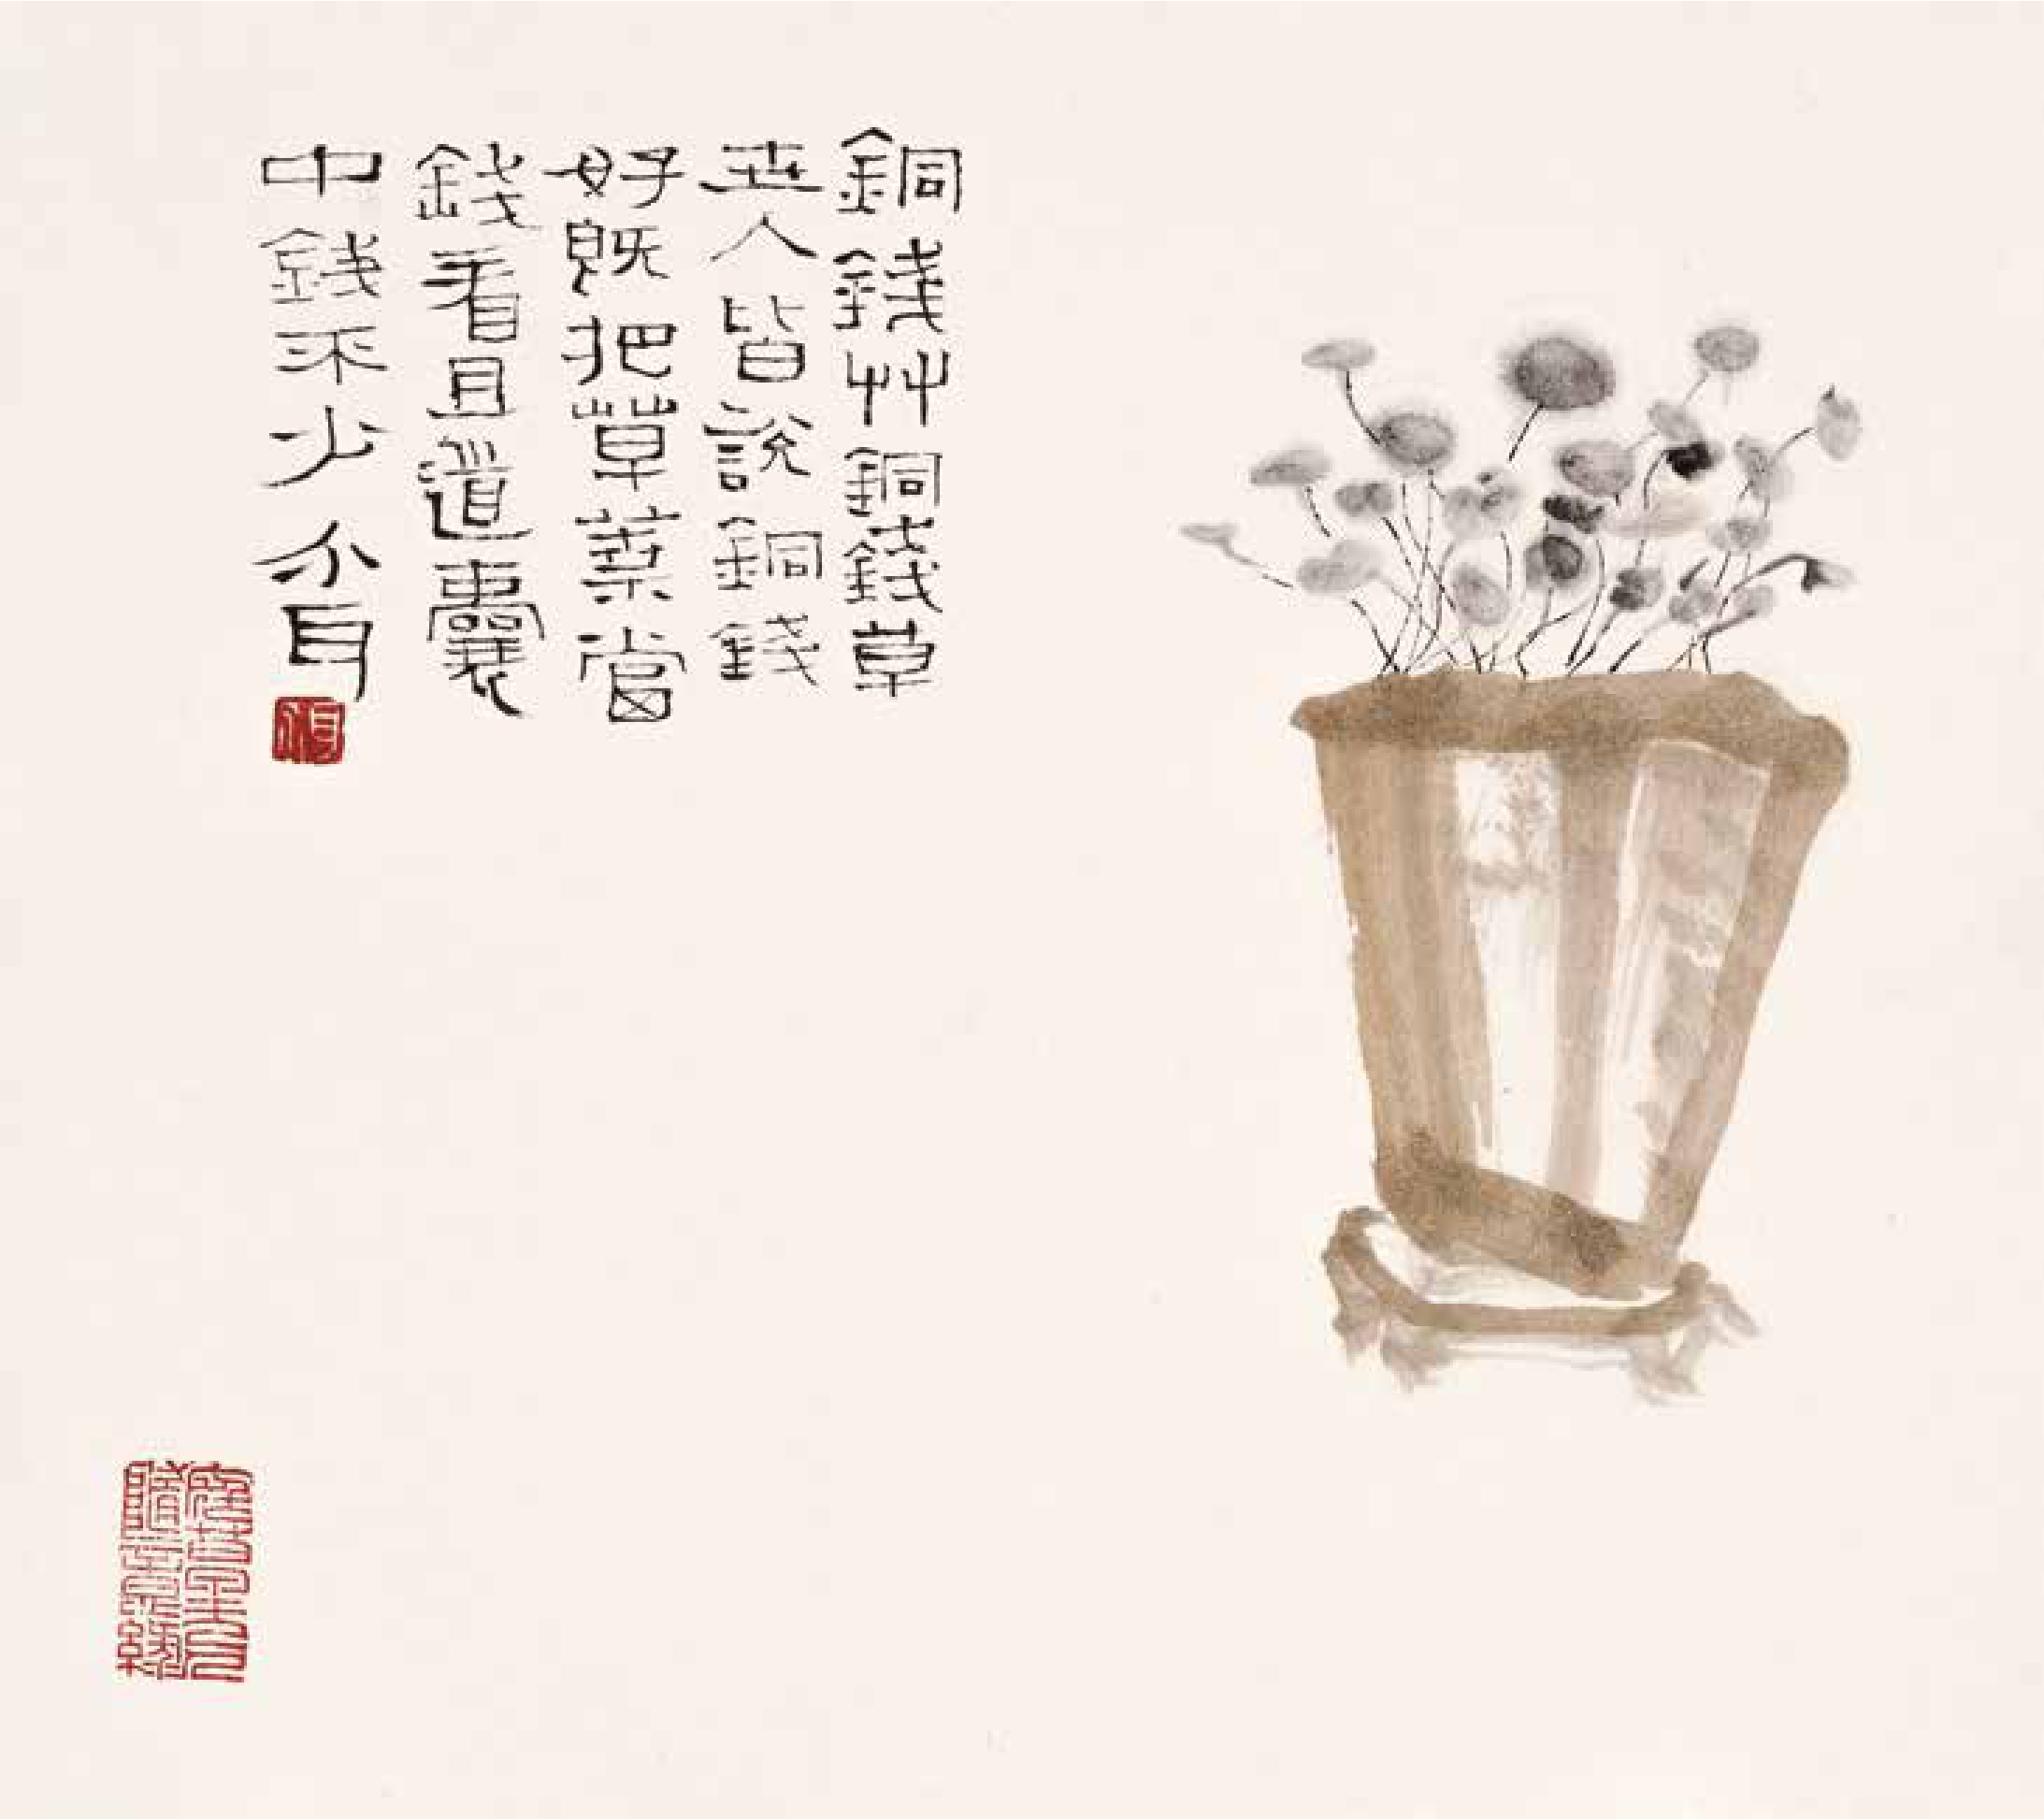 銅錢艸銅錢草
世人皆說銅錢
好既把草葉當
錢看且道囊
中錢不少